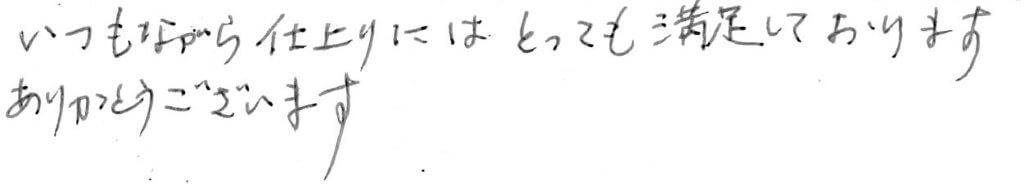 いつもながら仕上りにはとっても満足しております
ありがとうございます